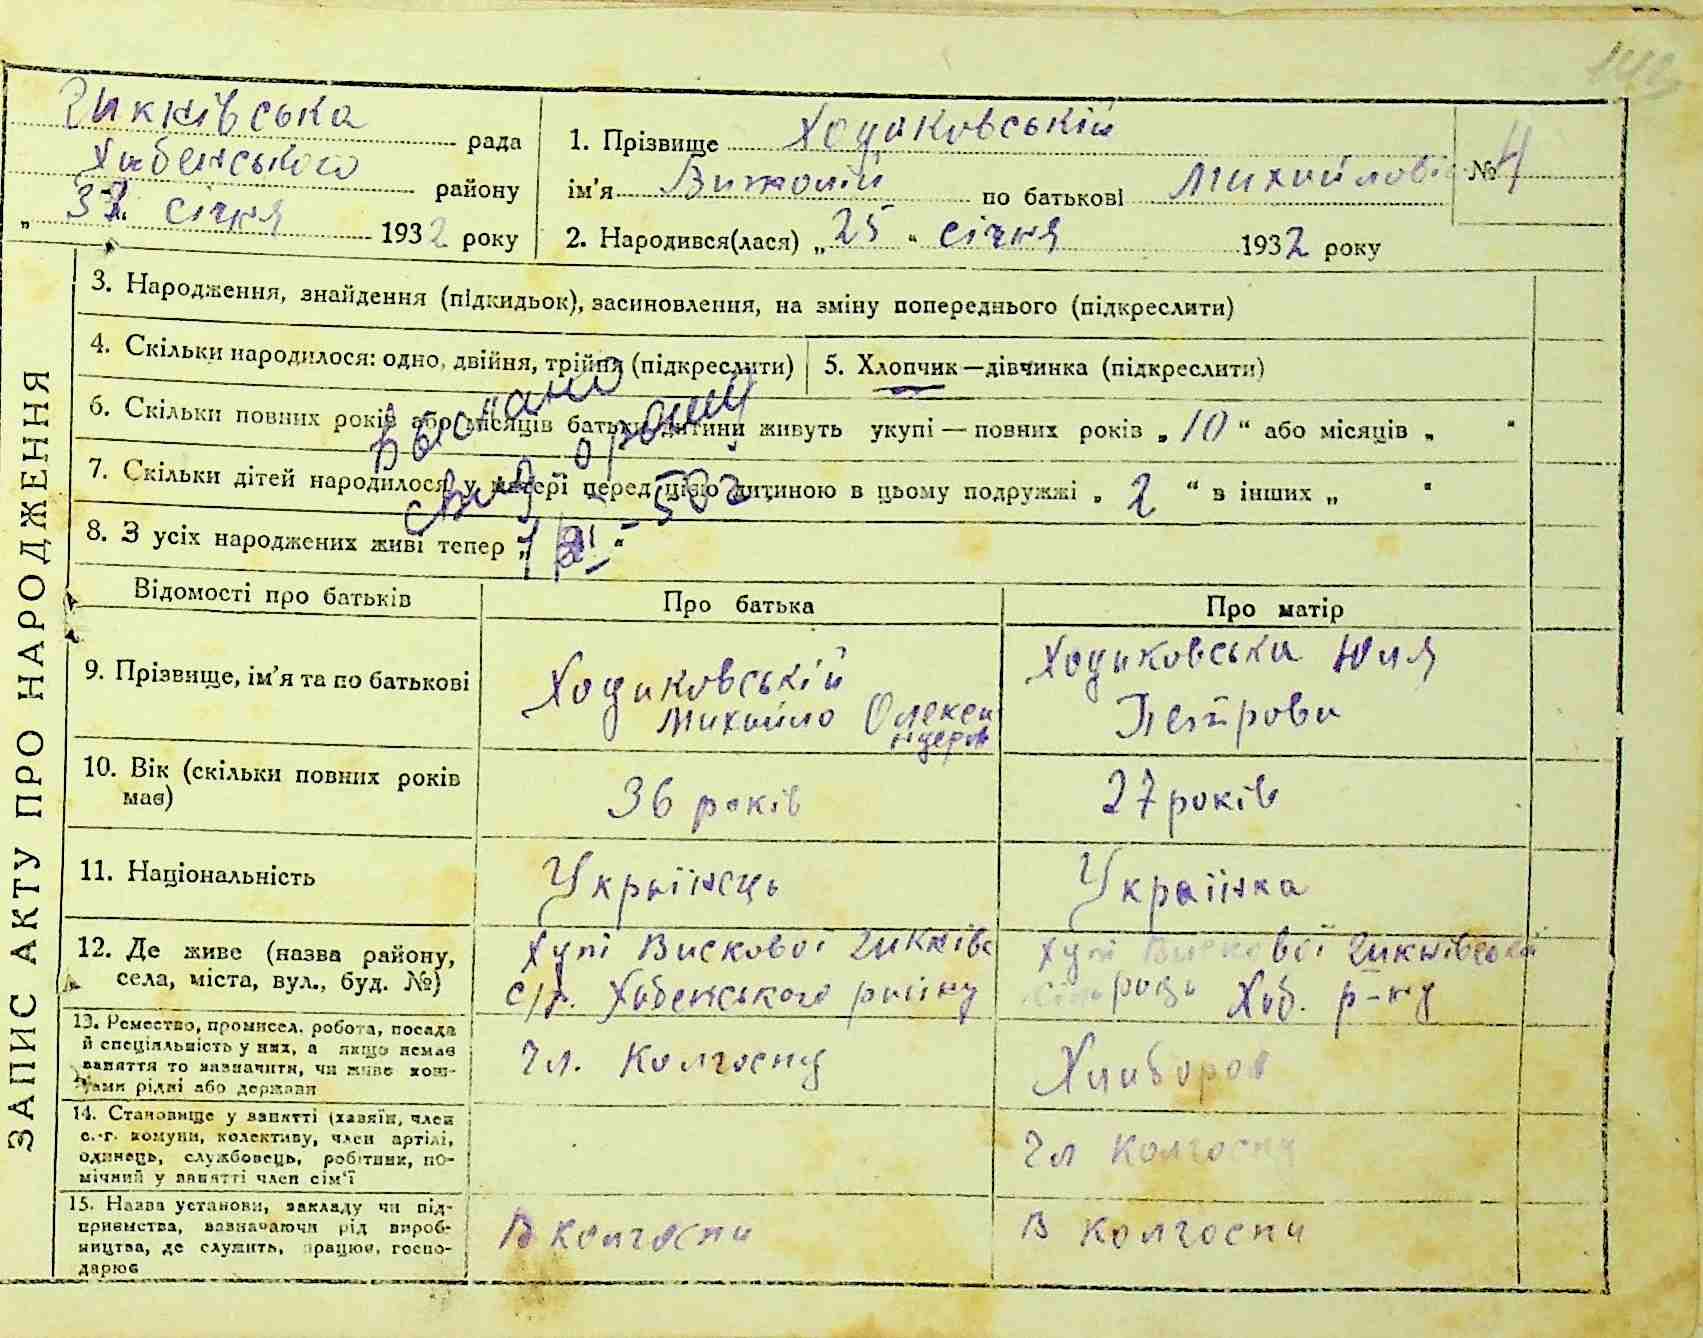 Чикнівська рада
Хабенського району
„ 31. січня 1932 року
1. Прізвище Ходаковській
№ 4
ім'я Витолій по батькові Михайлові
2. Народився(лася) „ 25 “ січня 1932 року
ЗАПИС АКТУ ПРО НАРОДЖЕННЯ
3. Народження, знайдення (підкидьок), засиновлення, на зміну попереднього (підкреслити)
4. Скільки народилося: одно, двійня, трійня (підкреслити)
5. Хлопчик—дівчинка (підкреслити)
6. Скільки повних років або місяців батьки дитини живуть укупі — повних років „ 10 “ або місяців „ “
7. Скільки дітей народилося у матері перед цією дитиною в цьому подружжі „ 2 “ в інших „ “
8. З усіх народжених живі тепер „ “
Выдано
свид
Відомості про батьків
Про батька
Про матір
9. Прізвище, ім'я та по батькові
Ходаковській
Михайло Олекса
ндеров
Ходаковська Юля
Петрова
10. Вік (скільки повних років
має)
36 років
27 років
11. Національність
Українець
Українка
12. Де живе (назва району,
села, міста, вул., буд. №)
Хуті Вискової Чикнівс
с/р. Хабенського району
Хуті Вискової Чикнівській
ради Хаб. р-ну
13. Ремество, промисел, робота, посада
й спеціяльність у них, а якщо немає
заняття то зазначити, чи живе кош-
тами рідні або держави
Чл. Колгоспу
Хлибороб
14. Становище у занятті (хазяїн, член
с.-г. комуни, колективу, член артілі,
одинець, службовець, робітник, по-
мічний у занятті член сім'ї
Чл Колгоспу
15. Назва установи, закладу чи під-
приємства, зазначаючи рід вироб-
ництва, де служить, працює, госпо-
дарює
В колгоспи
В колгоспи